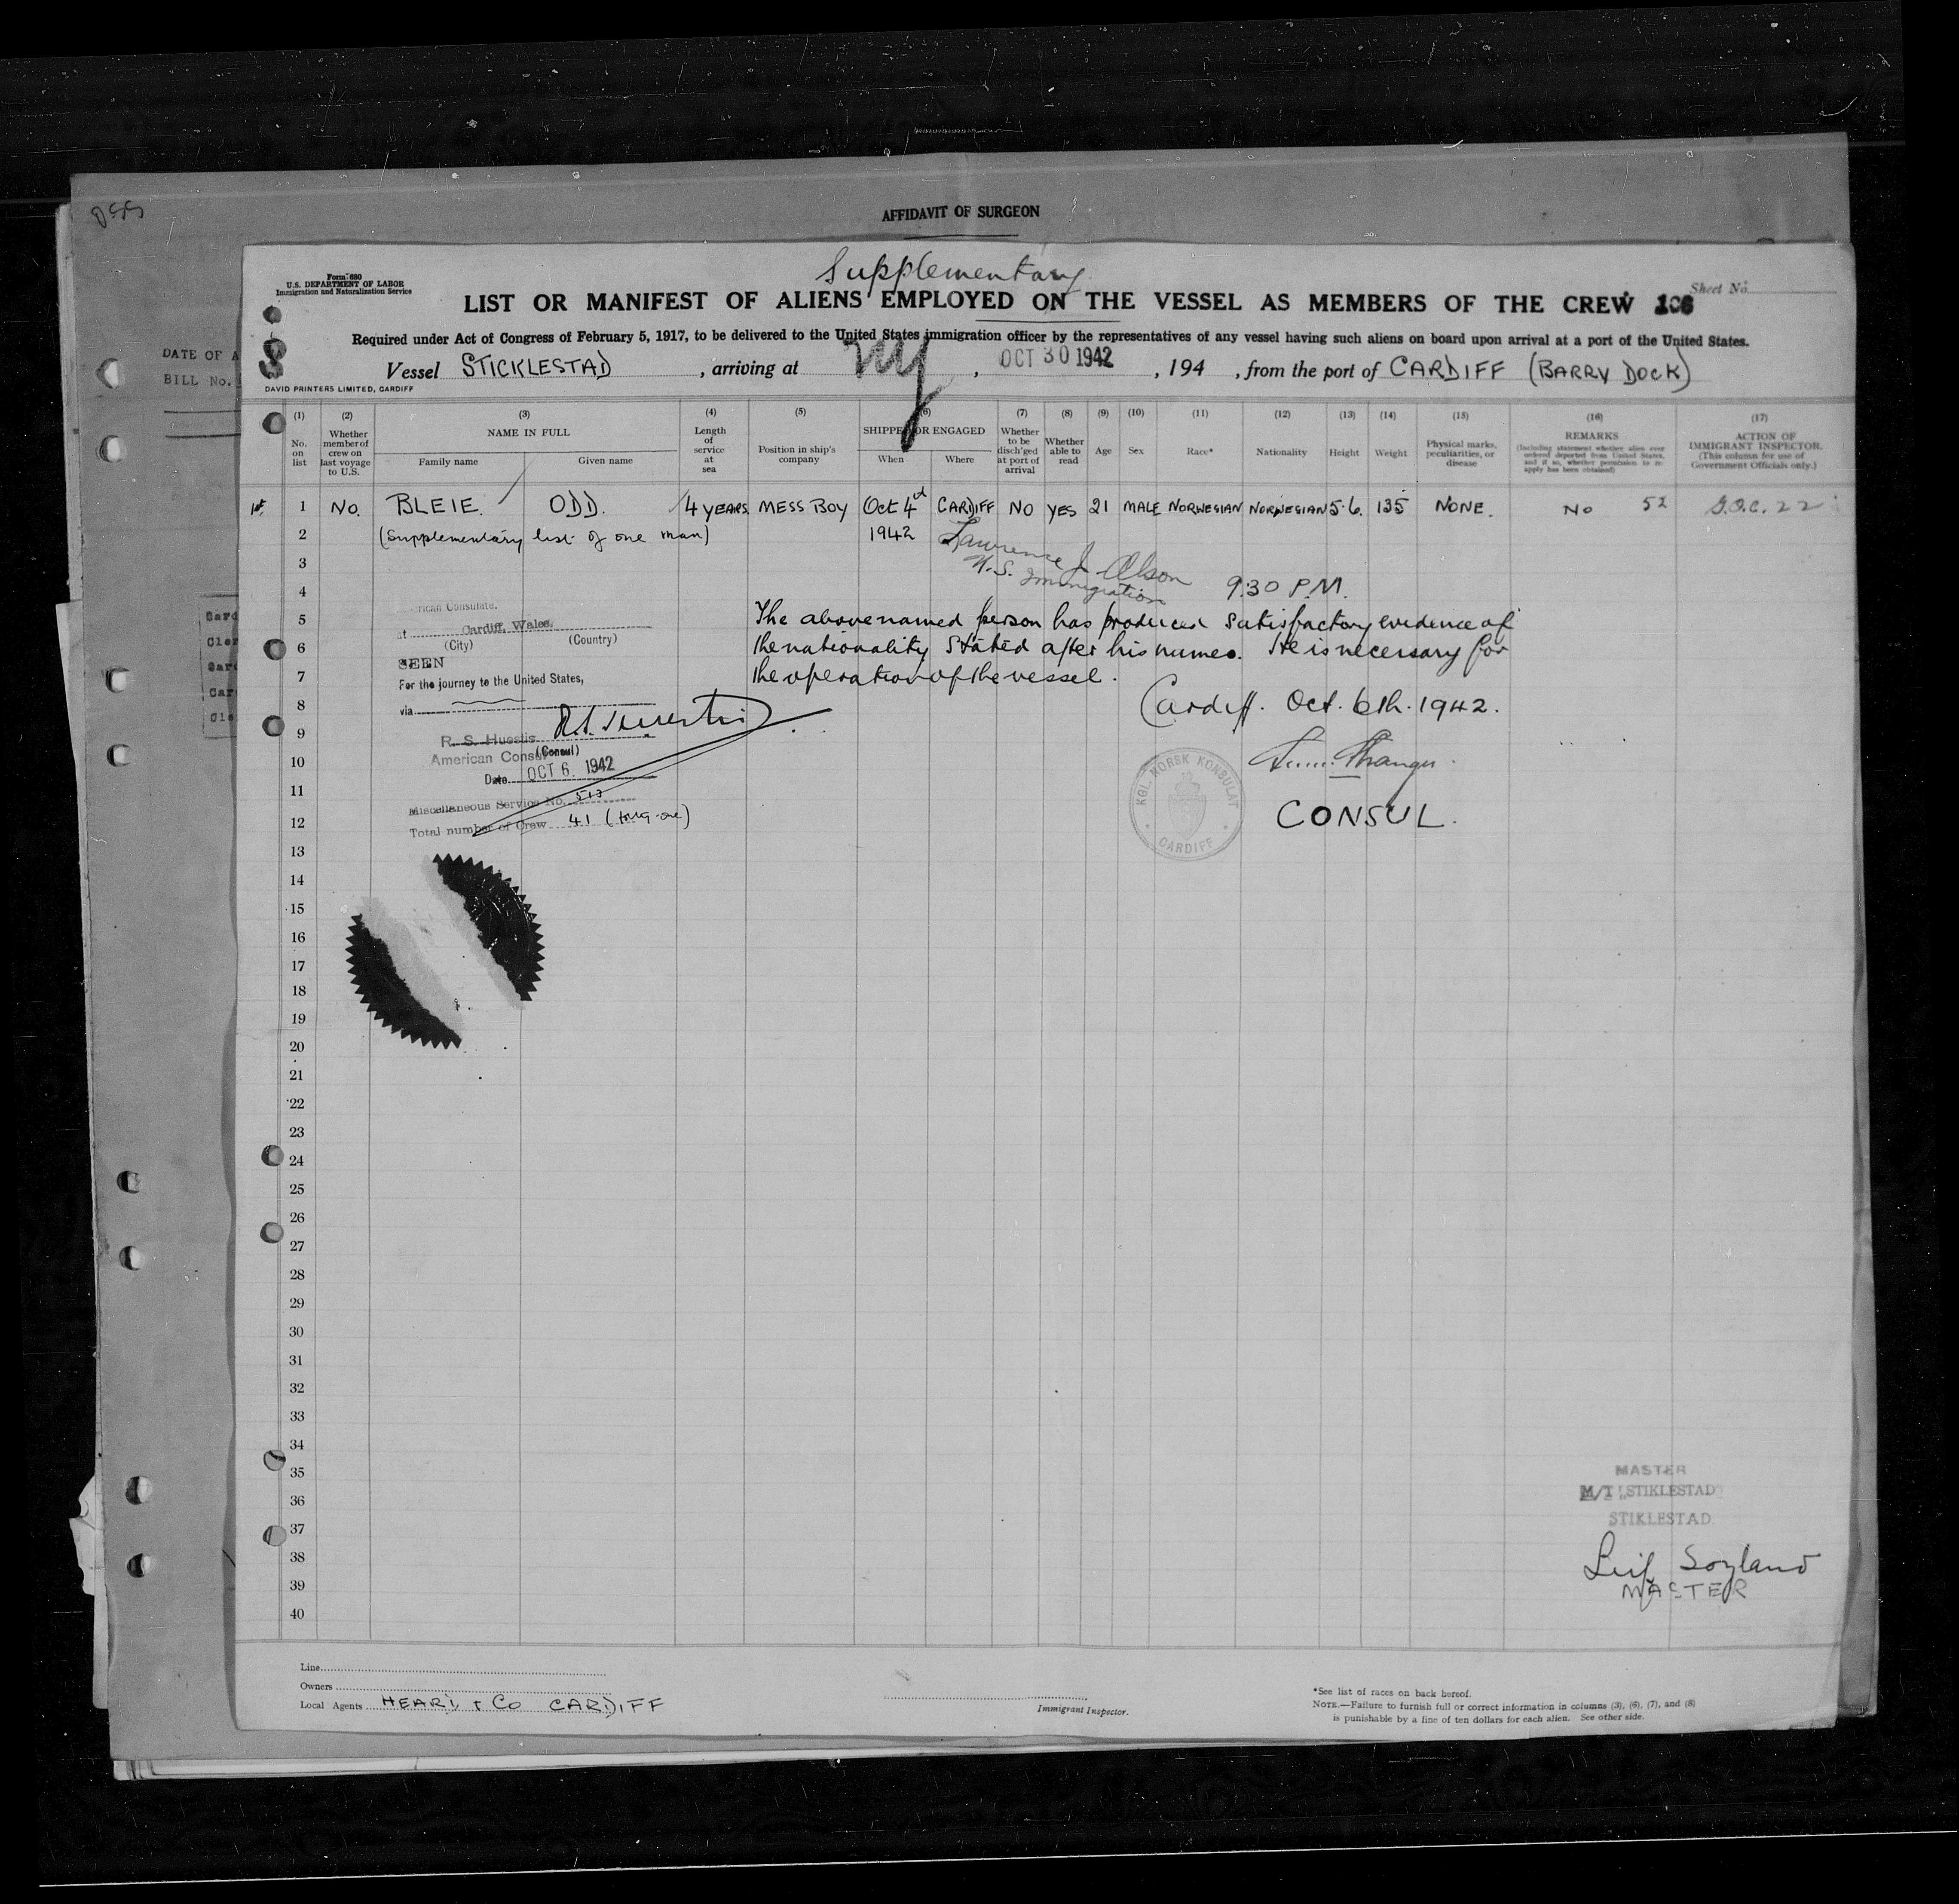 AFFIDAVIT OF SURGEON
DATE OF A
BILL No.
Supplementary
Form 680
U.S. DEPARTMENT OF LABOR
Immigration and Naturalization Service
Sheet No.
LIST OR MANIFEST OF ALIENS EMPLOYED ON THE VESSEL AS MEMBERS OF THE CREW 106
Required under Act of Congress of February 5, 1917, to be delivered to the United States immigration officer by the representatives of any vessel having such aliens on board upon arrival at a port of the United States.
Vessel STICKLESTAD, arriving at NY, OCT 30 1942, 194 , from the port of CARDIFF (BARRY DOCK)
DAVID PRINTERS LIMITED, CARDIFF
(1) (2) (3) (4) (5) (6) (7) (8) (9) (10) (11) (12) (13) (14) (15) (16) (17)
No. on list
Whether member of crew on last voyage to U.S.
NAME IN FULL
Family name Given name
Length of service at sea
Position in ship's company
SHIPPED OR ENGAGED
When Where
Whether to be disch'ged at port of arrival
Whether able to read
Age
Sex
Race*
Nationality
Height
Weight
Physical marks, peculiarities, or disease
REMARKS
(Including statement whether alien ever ordered deported from United States, and if so, whether permission to re-apply has been obtained)
ACTION OF IMMIGRANT INSPECTOR.
(This column for use of Government Officials only.)
1st 1 No. BLEIE. ODD. 4 YEARS MESS BOY Oct 4 CARDIFF NO YES 21 MALE NORWEGIAN NORWEGIAN 5·6. 135 NONE. No 52
2 (Supplementary list of one man) 1942
Lawrence J. Olson
3
U.S. Immigration 9:30 P.M.
4
American Consulate.
5 The above named person has produced satisfactory evidence of
at Cardiff, Wales.
(City) (Country)
6 the nationality stated after his names. He is necessary for
SEEN
7 the operation of the vessel.
For the journey to the United States,
8 Cardiff. Oct. 6th. 1942.
via
9
R. S. Huestis
(Consul)
10
American Consul
Date OCT 6. 1942
11
Miscellaneous Service No. 513
12 CONSUL.
Total number of Crew 41 (forty-one)
KGL. NORSK KONSULAT
CARDIFF
13
14
15
16
17
18
19
20
21
22
23
24
25
26
27
28
29
30
31
32
33
34
35
36
37
38
39
40
MASTER
M/T "STIKLESTAD"
STIKLESTAD
Leif Soyland
MASTER
Line
Owners
Local Agents HEARD & Co CARDIFF
Immigrant Inspector.
*See list of races on back hereof.
NOTE.—Failure to furnish full or correct information in columns (3), (6), (7), and (8)
is punishable by a fine of ten dollars for each alien. See other side.